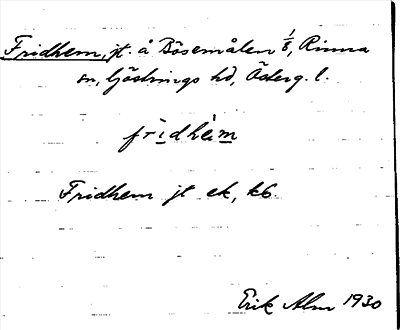 Fridhem, jt. å Bösemålen 1/8, Rinna
sn, Göstrings hd, Österg. l.
fri̲dhèm̲
Fridhem jt ek, k6.
Erik Alm 1930